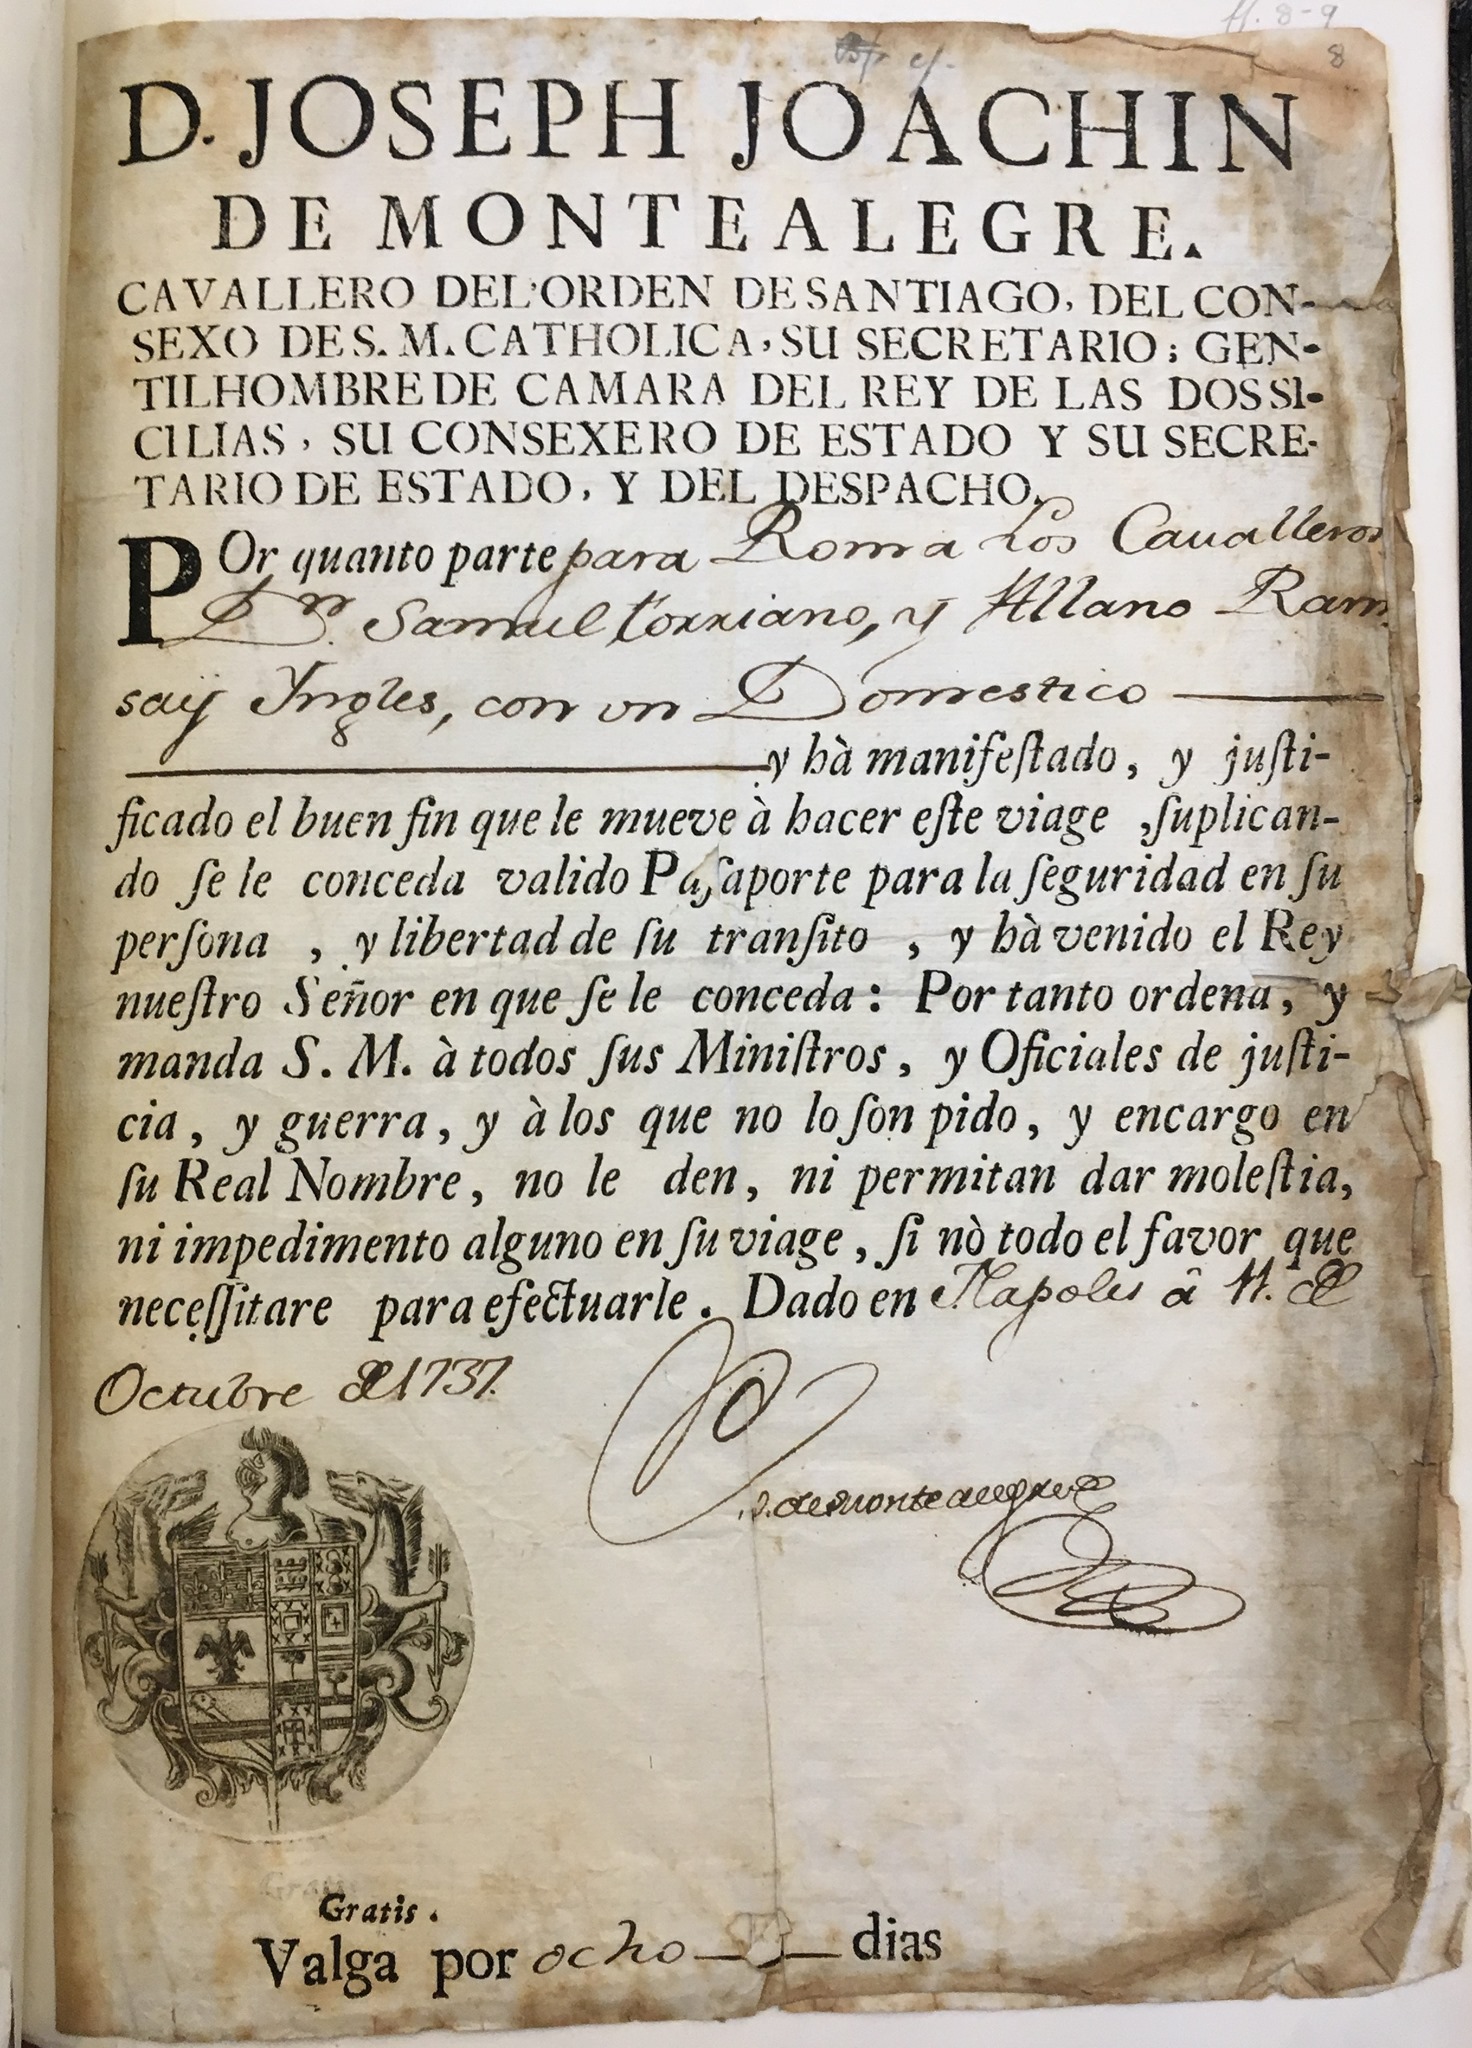 ff. 8-9
8
D. JOSEPH JOACHIN
DE MONTEALEGRE.
CAVALLERO DEL'ORDEN DE SANTIAGO, DEL CON-
SEXO DE S. M. CATHOLICA, SU SECRETARIO; GEN-
TILHOMBRE DE CAMARA DEL REY DE LAS DOS SI-
CILIAS, SU CONSEXERO DE ESTADO Y SU SECRE-
TARIO DE ESTADO, Y DEL DESPACHO.
POr quanto parte para Roma Los Caualleros
Dn. Samuel Torriano, y Allano Ram
saÿ Yngles, con un Domestico
y hà manifeſtado, y juſti-
ficado el buen fin que le mueve à hacer eſte viage, ſuplican-
do ſe le conceda valido Paſaporte para la ſeguridad en ſu
perſona, y libertad de ſu tranſito, y hà venido el Rey
nueſtro Señor en que ſe le conceda: Por tanto ordena, y
manda S. M. à todos ſus Miniſtros, y Oficiales de juſti-
cia, y guerra, y à los que no lo ſon pido, y encargo en
ſu Real Nombre, no le den, ni permitan dar moleſtia,
ni impedimento alguno en ſu viage, ſi nò todo el favor que
neceſſitare para efectuarle. Dado en Napoles â 11. de
Octubre de 1737.
J. de Montealegre
Gratis.
Valga por ocho dias